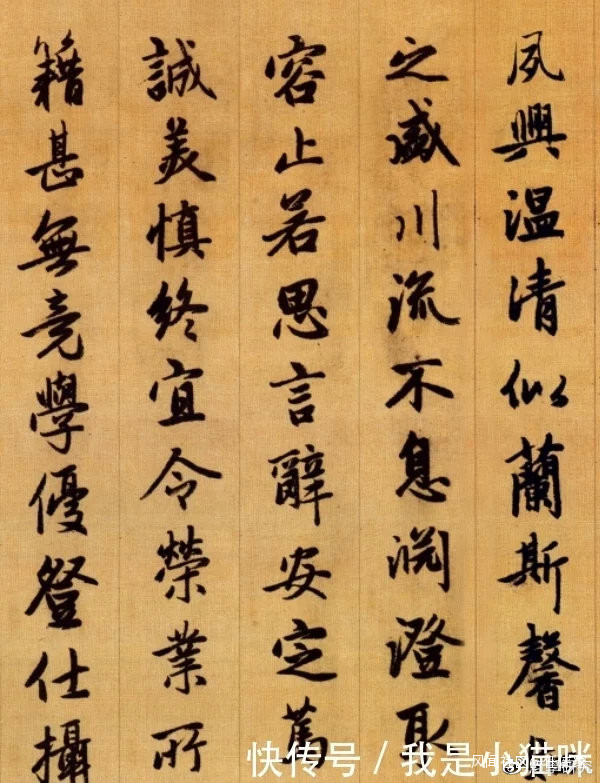 夙興温清似蘭斯馨
之盛川流不息渊澄取
容止若思言辭安定篤
誠美慎終宜令榮業所
籍甚無竟學優登仕攝
快传号 / 我是小猫咪